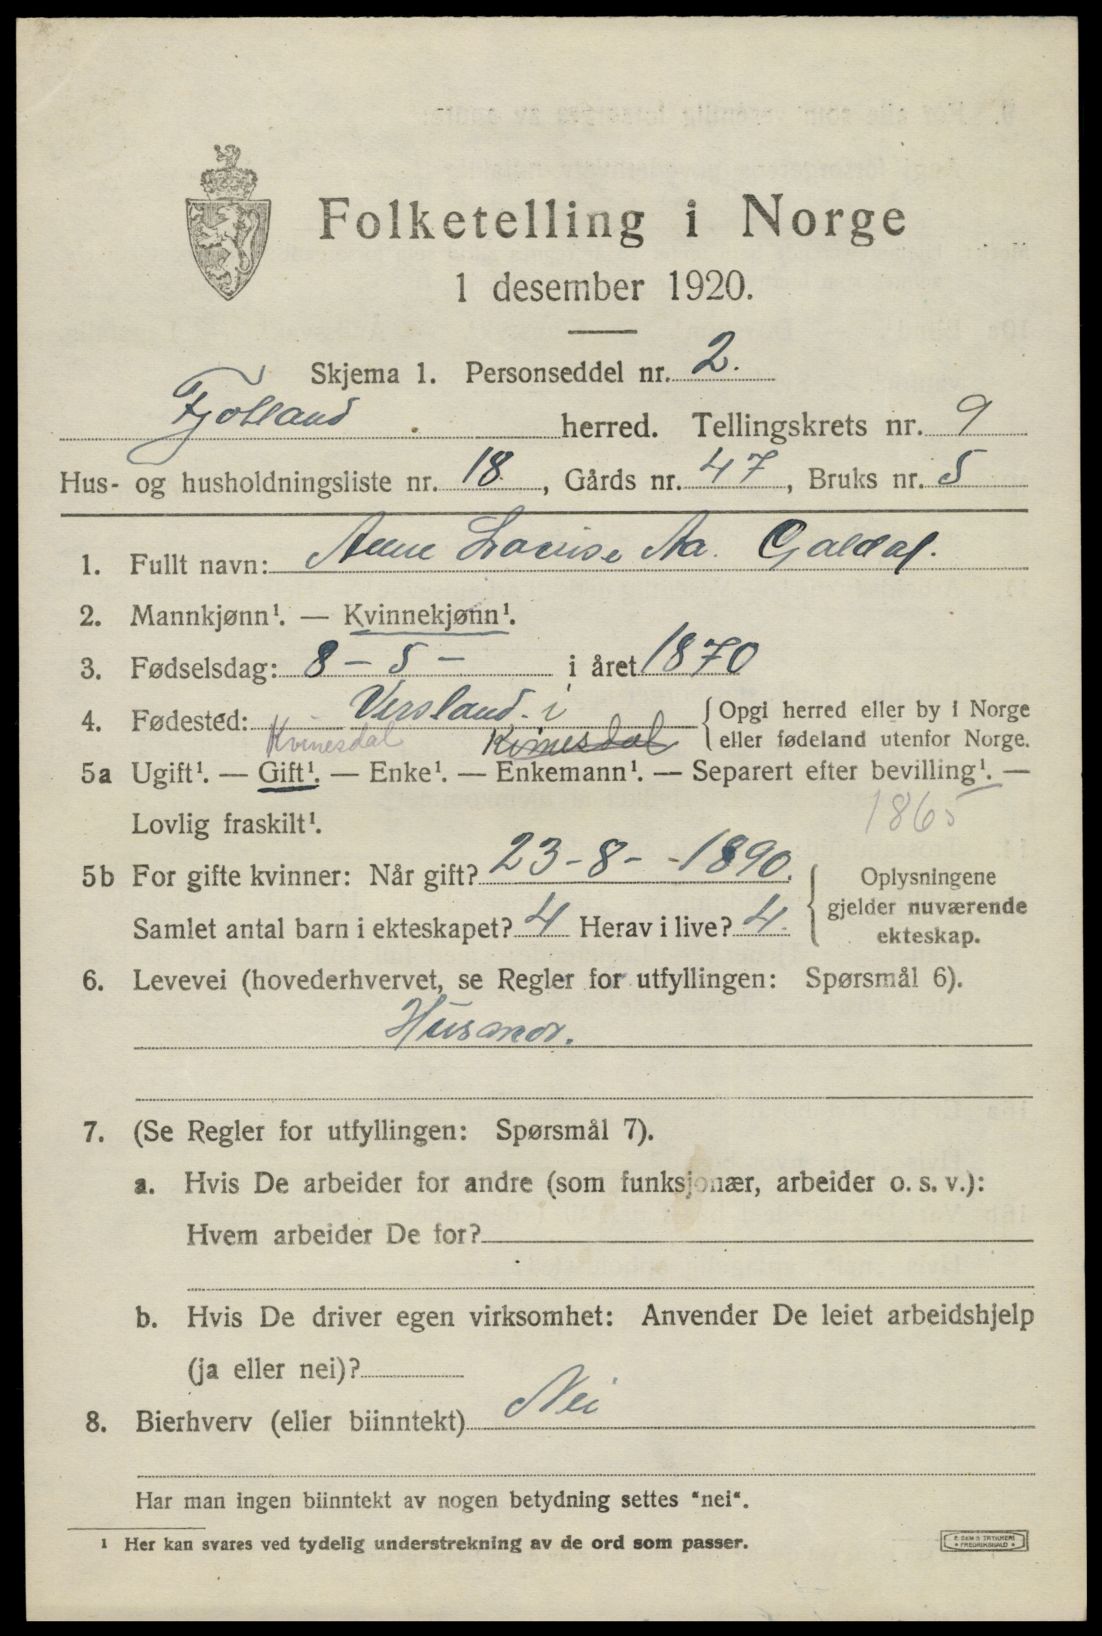 Folketelling i Norge
1 desember 1920.
Skjema 1. Personseddel nr. 2.
Fjotland herred. Tellingskrets nr. 9
Hus- og husholdningsliste nr. 18, Gårds nr. 47, Bruks nr. 5
1. Fullt navn: Anne Lovise Aa. Galdal.
2. Mannkjønn¹. — Kvinnekjønn¹.
3. Fødselsdag: 8 - 5 - i året 1870
4. Fødested: Versland i { Opgi herred eller by i Norge
Kvinesdal Kvinesdal eller fødeland utenfor Norge.
5a Ugift¹. — Gift¹. — Enke¹. — Enkemann¹. — Separert efter bevilling¹. —
Lovlig fraskilt¹. 1865
5b For gifte kvinner: Når gift? 23-8- -1890. { Oplysningene
gjelder nuværende
Samlet antal barn i ekteskapet? 4 Herav i live? 4. ekteskap.
6. Levevei (hovederhvervet, se Regler for utfyllingen: Spørsmål 6).
Husmor.
7. (Se Regler for utfyllingen: Spørsmål 7).
a. Hvis De arbeider for andre (som funksjonær, arbeider o. s. v.):
Hvem arbeider De for?
b. Hvis De driver egen virksomhet: Anvender De leiet arbeidshjelp
(ja eller nei)?
8. Bierhverv (eller biinntekt) Nei
Har man ingen biinntekt av nogen betydning settes "nei".
¹ Her kan svares ved tydelig understrekning av de ord som passer.